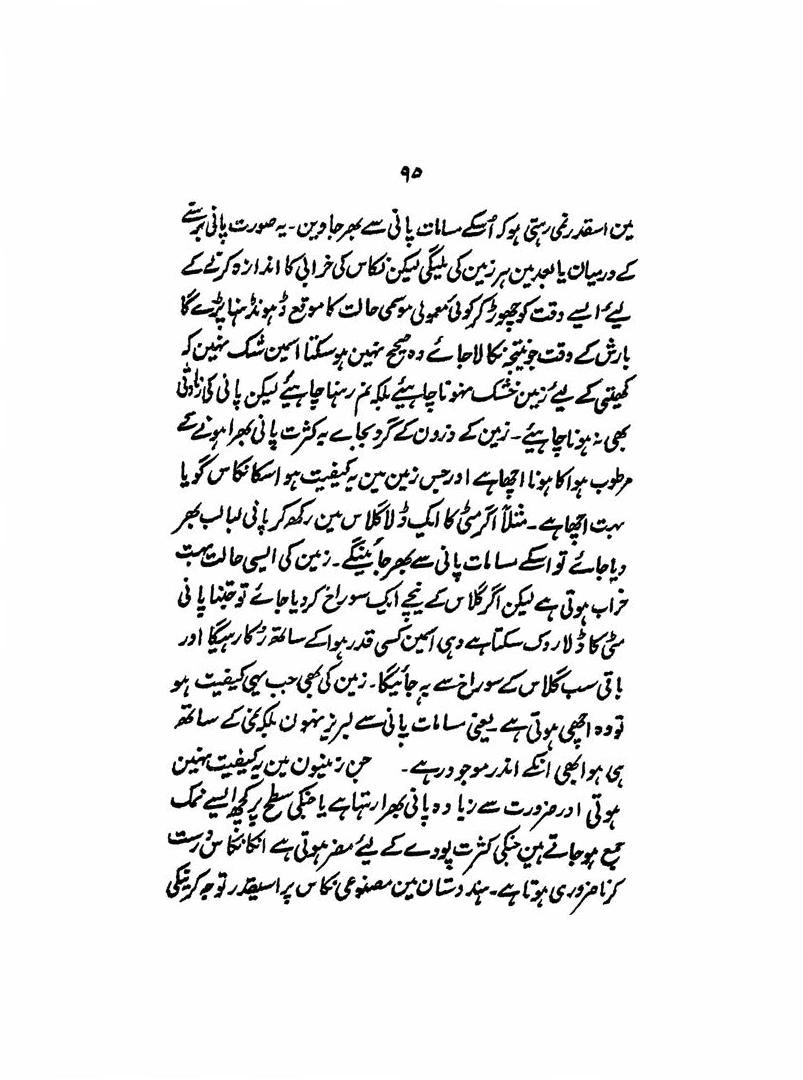 ۹۵
مین اسقدر نمی رہتی ہو کہ اُسکے مسامات پانی سے بھر جاوین۔ یہ صورت پانی برسنے
کے درمیان یا بعد مین ہر زمین کی ملیگی لیکن نکاس کی خرابی کا اندازہ کرنے کے
لیئے ایسے وقت کو چھوڑ کر کوئی معمولی موسمی حالت کا موقع ڈہونڈہنا پڑے گا
بارش کے وقت جو نتیجہ نکالا جائے وہ صحیح نہین ہو سکتا اسمین شک نہین کہ
کھیتی کے لیئے زمین خشک نہونا چاہیئے بلکہ نم رہنا چاہیئے لیکن پانی کی زیادتی
بھی نہ ہونا چاہیئے۔ زمین کے ذرون کے گرد بجاے بہ کثرت پانی بھرا ہونے کے
مرطوب ہوا کا ہونا اچھا ہے اور جس زمین مین یہ کیفیت ہو اسکا نکاس گویا
بہت اچھا ہے۔ مثلاً اگر مٹی کا ایک ڈلا گلاس مین رکھ کر پانی لبالب بھر
دیا جائے تو اسکے مسامات پانی سے بھر جائینگے۔ زمین کی ایسی حالت بہت
خراب ہوتی ہے لیکن اگر گلاس کے نیچے ایک سوراخ کر دیا جائے تو جتنا پانی
مٹی کا ڈلا روک سکتا ہے وہی اسمین کسی قدر ہوا کے ساتھ رُکا رہیگا اور
باقی سب گلاس کے سوراخ سے بہ جائیگا۔ زمین کی بھی جب یہی کیفیت ہو
تو وہ اچھی ہوتی ہے یعنی مسامات پانی سے لبریز نہون بلکہ نمی کے ساتھ
ہی ہوا بھی انکے اندر موجود رہے۔ جن زمینون مین یہ کیفیت نہین
ہوتی اور ضرورت سے زیادہ پانی بھرا رہتا ہے یا جنکی سطح پر کچھ ایسے نمک
جمع ہو جاتے ہین جنکی کثرت پودے کے لیئے مضر ہوتی ہے انکا نکاس درست
کرنا ضروری ہوتا ہے۔ ہندوستان مین مصنوعی نکاس پر اسیقدر توجہ کرنیکی